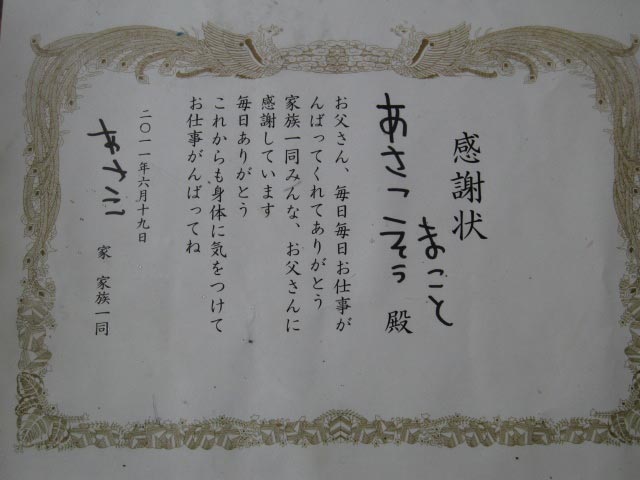 感謝状
まこと
あさこ そう 殿
お父さん、毎日毎日お仕事が
んばってくれてありがとう
家族一同みんな、お父さんに
感謝しています
毎日ありがとう
これからも身体に気をつけて
お仕事がんばってね
二〇一一年六月十九日
あさこ 家 家族一同